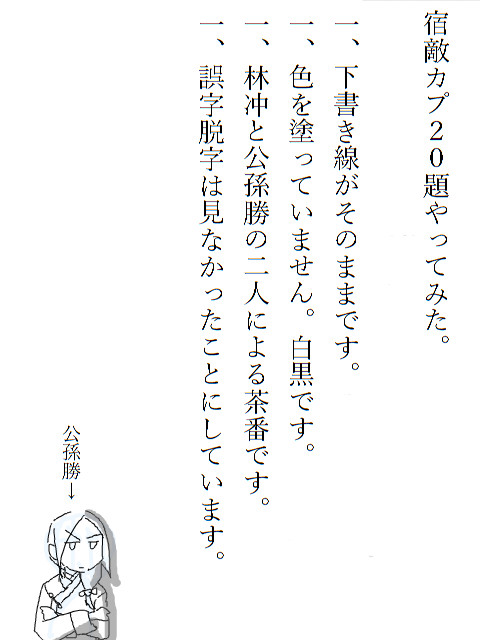 宿敵カプ20題やってみた。
一、下書き線がそのままです。
一、色を塗っていません。白黒です。
一、林冲と公孫勝の二人による茶番です。
一、誤字脱字は見なかったことにしています。
公孫勝→